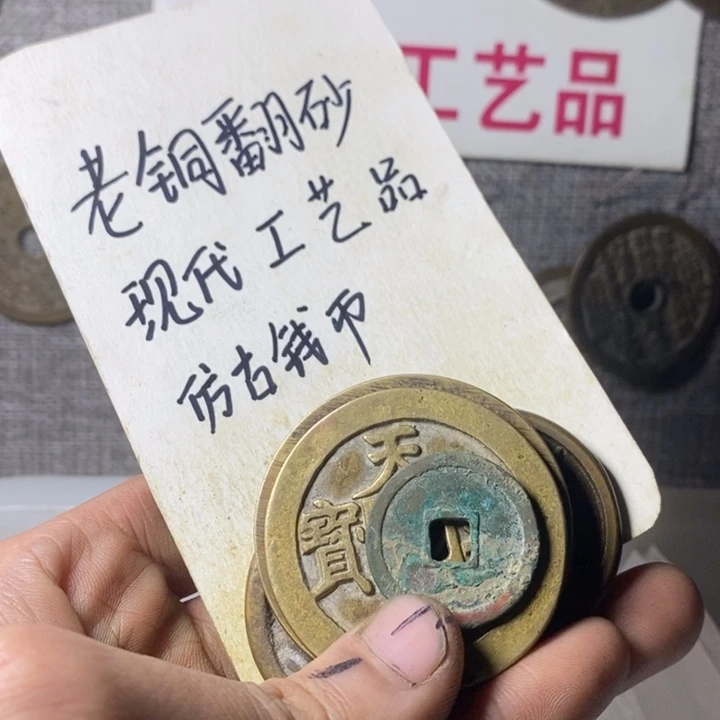 工艺品
老铜翻砂
现代工艺品
仿古钱币
天
寳